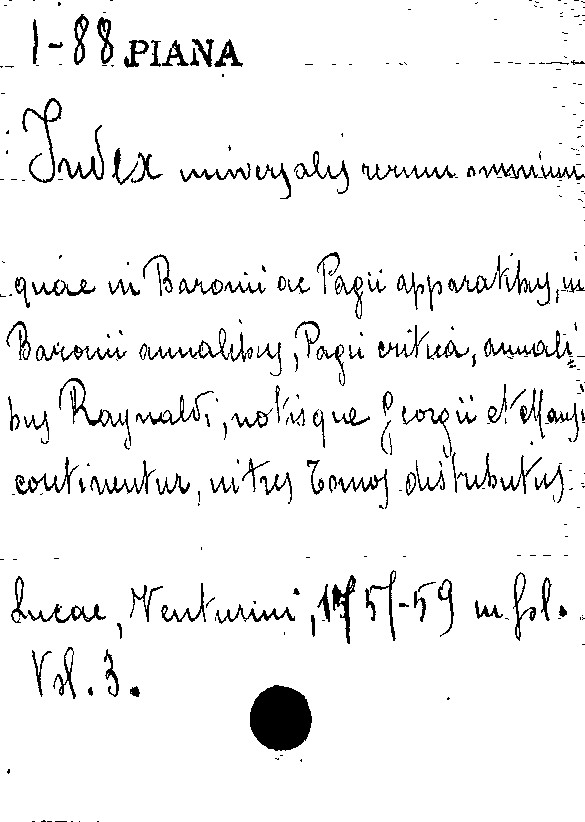 1-88 PIANA
Index universalis rerum omnium
quae in Baronii ac Pagii apparatibus, in
Baronii annalibus, Pagii critica, annali
bus Raynaldi, notisque Georgii et Mansi
continentur, in tres Tomos distributus
Lucae, Venturini, 1757-59 in fol.
Vol. 3.